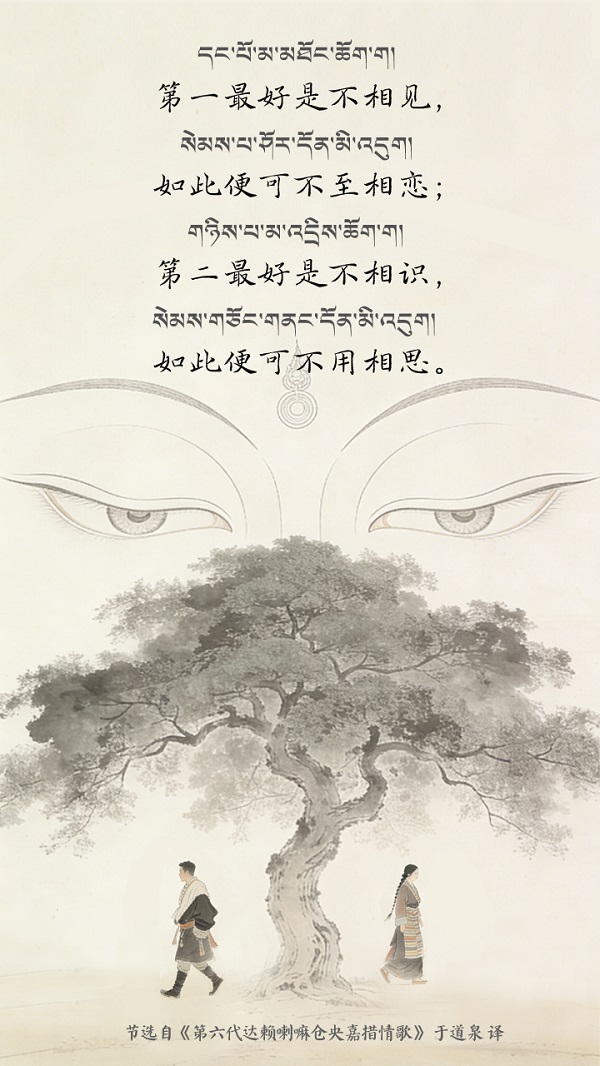 དང་པོ་མ་མཐོང་ཆོག་ག།
第一最好是不相见，
སེམས་པ་ཤོར་དོན་མི་འདུག།
如此便可不至相恋；
གཉིས་པ་མ་འདྲིས་ཆོག་ག།
第二最好是不相识，
སེམས་གཅོང་གནང་དོན་མི་འདུག།
如此便可不用相思。
节选自《第六代达赖喇嘛仓央嘉措情歌》于道泉 译